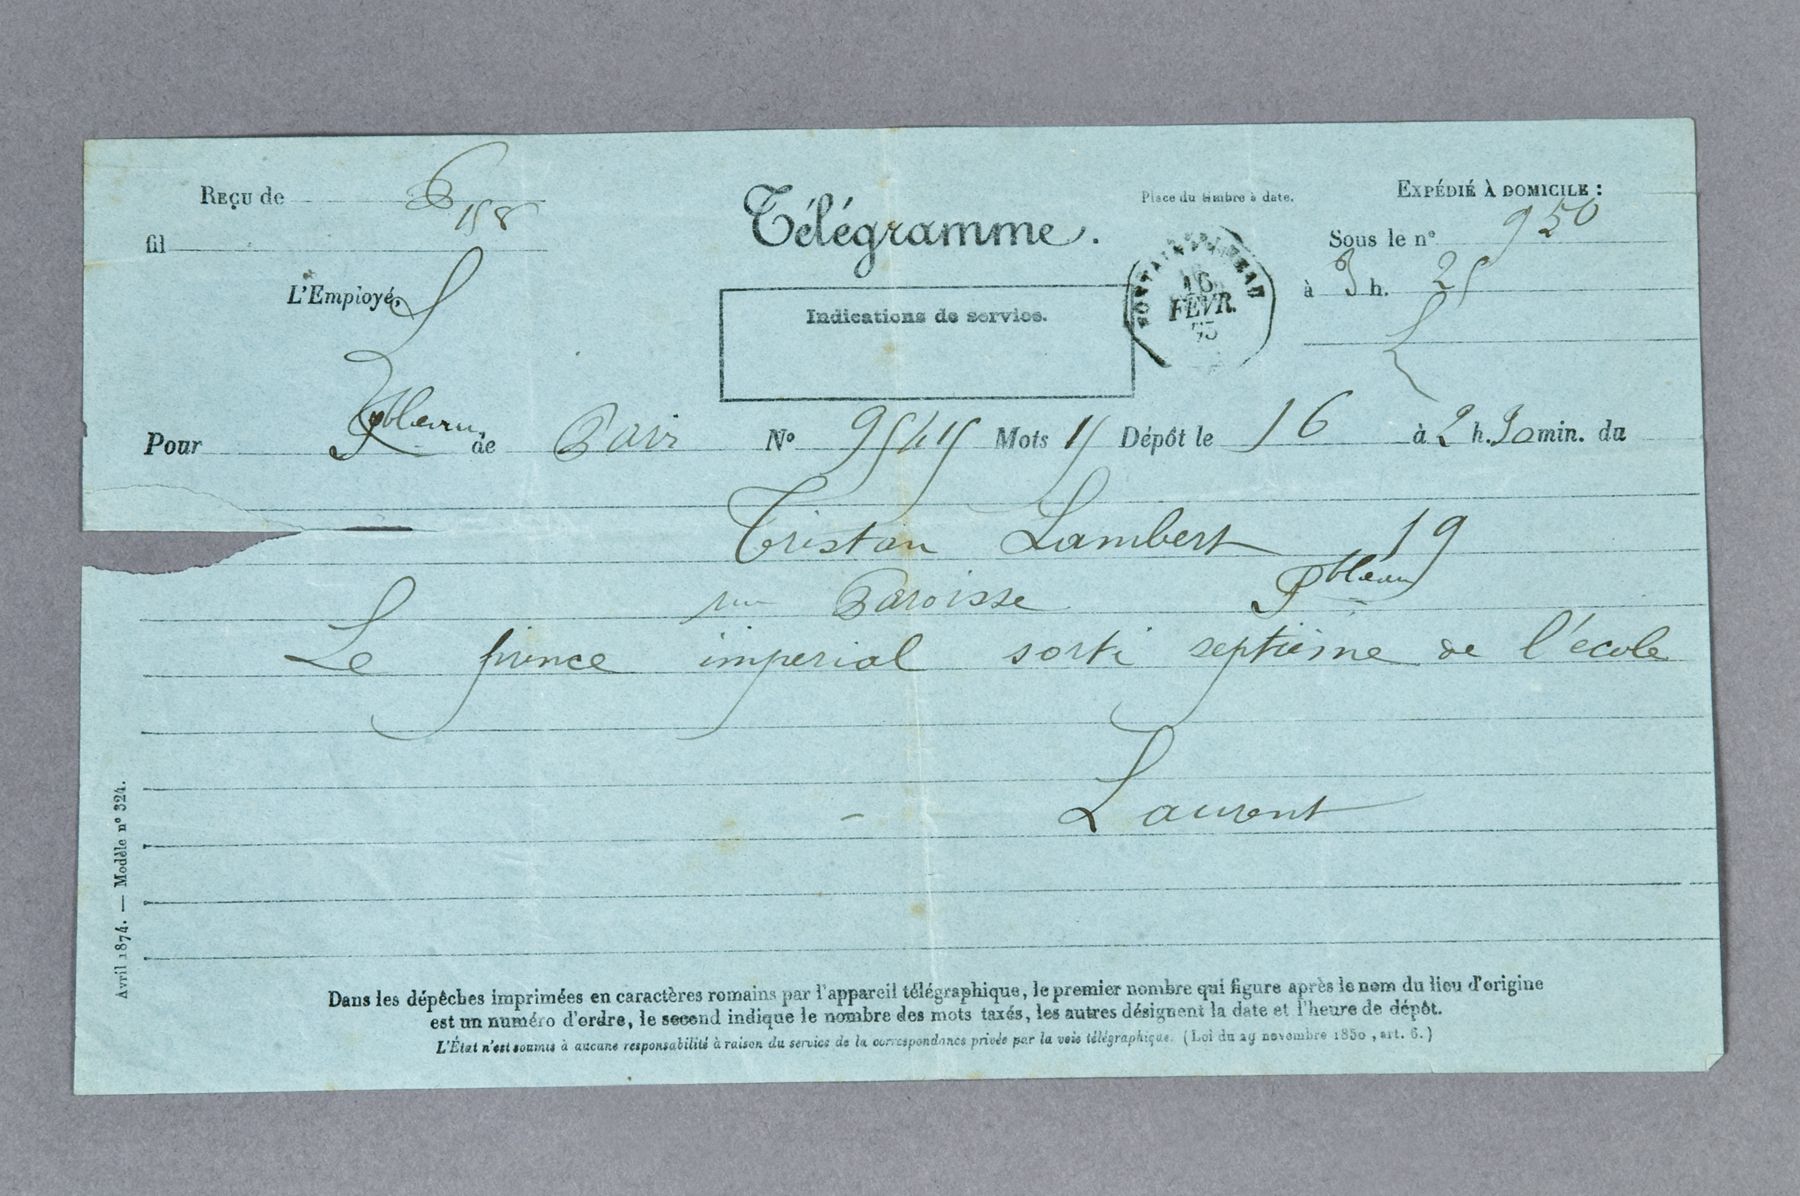 Reçu de
158
fil
L'Employé,
Télégramme.
Indications de service.
Place du timbre à date.
FONTAINEBLEAU
16
FEVR.
75
Expédié à domicile :
Sous le n° 950
à 3 h. 25
Pour Fbleau de Paris N° 9545 Mots 15 Dépôt le 16 à 2 h. 30 min. du
Tristan Lambert 19
rue Paroisse Fbleau
Le prince imperial sorti septième de l'école
Laurent
Avril 1874. — Modèle n° 324.
Dans les dépêches imprimées en caractères romains par l'appareil télégraphique, le premier nombre qui figure après le nom du lieu d'origine
est un numéro d'ordre, le second indique le nombre des mots taxés, les autres désignent la date et l'heure de dépôt.
L'État n'est soumis à aucune responsabilité à raison du service de la correspondance privée par la voie télégraphique. (Loi du 29 novembre 1850, art. 6.)